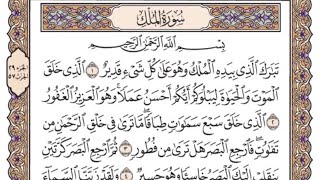 سُورَةُ المُلْكِ
بِسْمِ اللَّهِ الرَّحْمَٰنِ الرَّحِيمِ
تَبَٰرَكَ الَّذِى بِيَدِهِ الْمُلْكُ وَهُوَ عَلَىٰ كُلِّ شَىْءٍ قَدِيرٌ ١ الَّذِى خَلَقَ
الْمَوْتَ وَالْحَيَوٰةَ لِيَبْلُوَكُمْ أَيُّكُمْ أَحْسَنُ عَمَلًا وَهُوَ الْعَزِيزُ الْغَفُورُ
٢ الَّذِى خَلَقَ سَبْعَ سَمَٰوَٰتٍ طِبَاقًا مَّا تَرَىٰ فِى خَلْقِ الرَّحْمَٰنِ مِن
تَفَٰوُتٍ فَارْجِعِ الْبَصَرَ هَلْ تَرَىٰ مِن فُطُورٍ ٣ ثُمَّ ارْجِعِ الْبَصَرَ كَرَّتَيْنِ
يَنقَلِبْ إِلَيْكَ الْبَصَرُ خَاسِئًا وَهُوَ حَسِيرٌ ٤ وَلَقَدْ زَيَّنَّا السَّمَآءَ
الجزء ٢٩
الحزب ٥٧